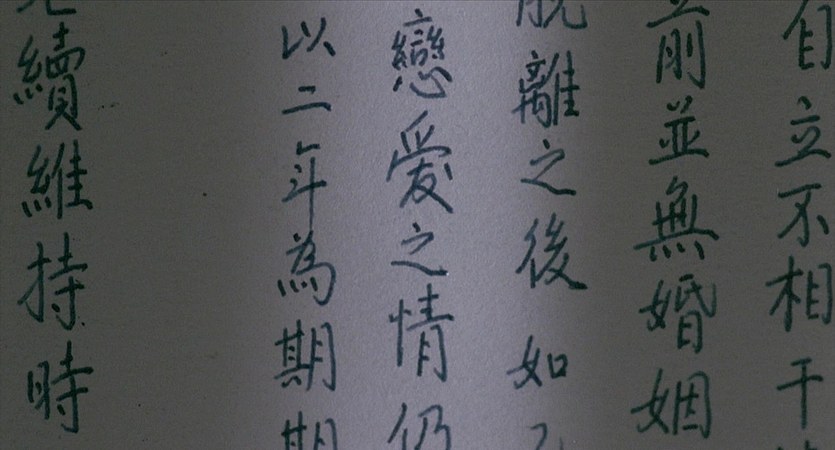 自立不相干
前並無婚姻
脫離之後如
戀愛之情仍
以二年為期期
續維持時